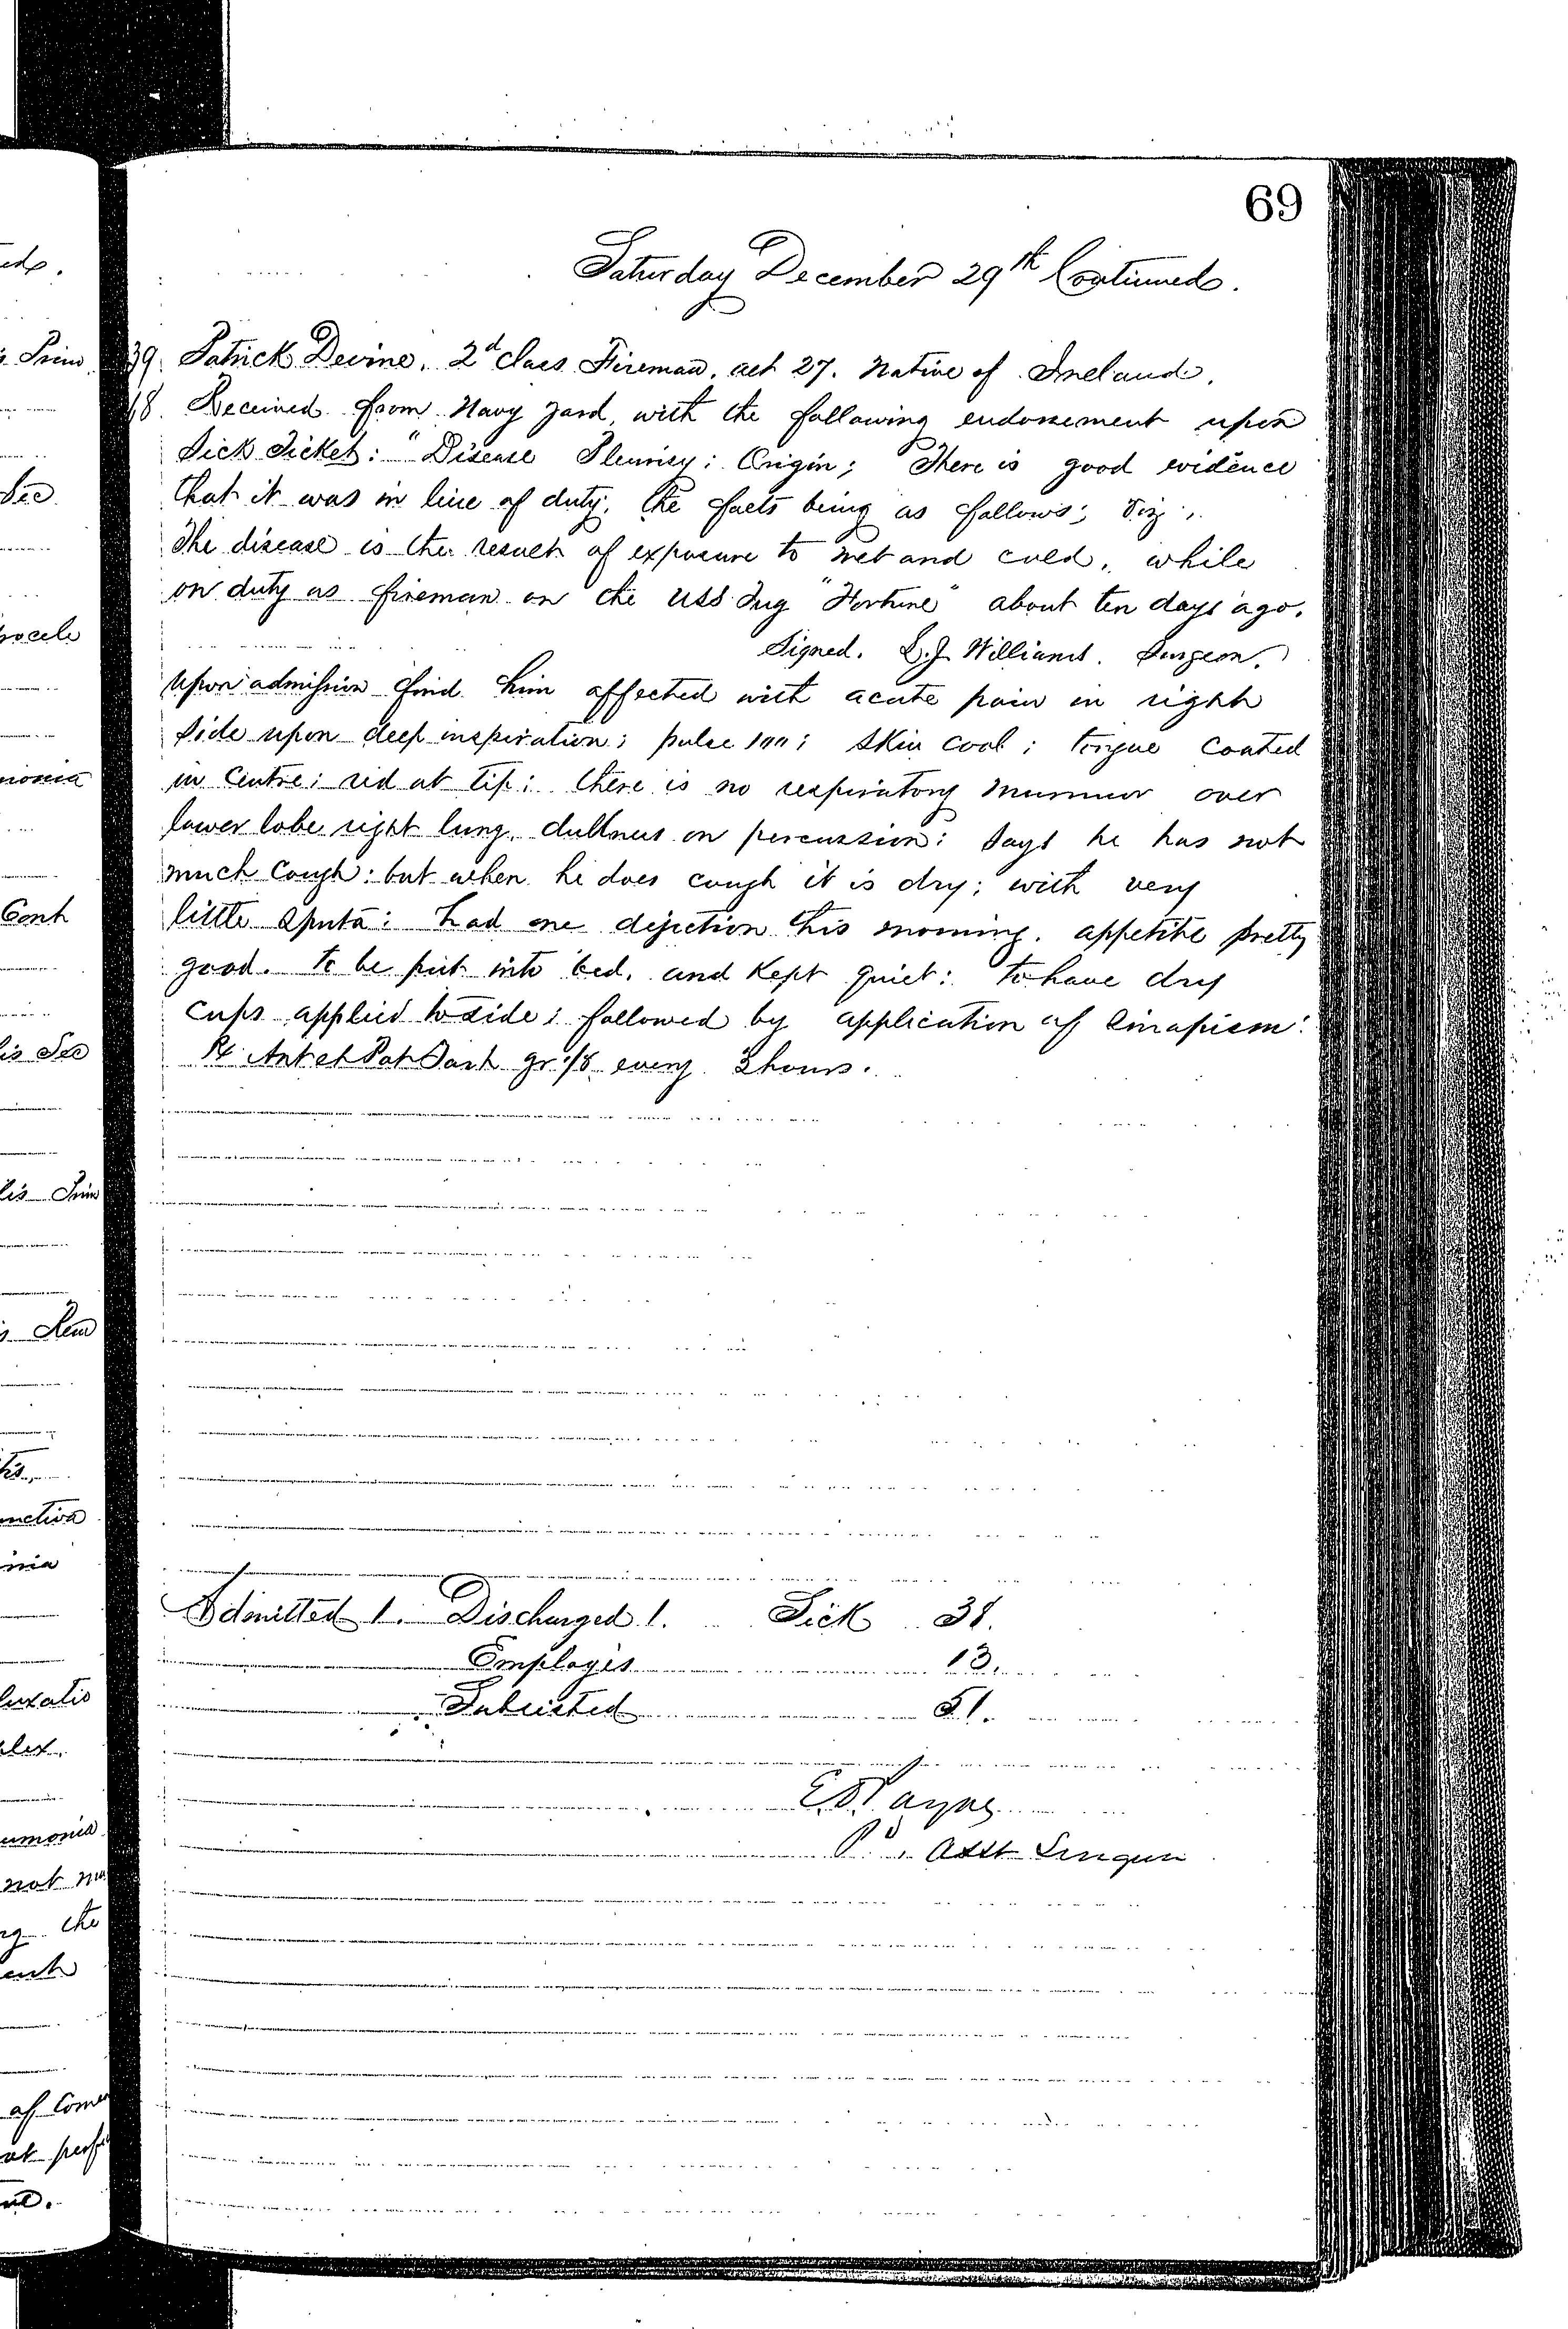 69
Saturday December 29th Continued.
39. Patrick Devine. 2d Class Fireman. aet 27. Native of Ireland.
18. Received from Navy Yard, with the following endorsement upon
Sick Ticket: "Disease Pleurisy; Origin; There is good evidence
that it was in line of duty, the facts being as follows; Viz;
The disease is the result of exposure to wet and cold, while
on duty as fireman on the USS Tug "Fortune" about ten days ago.
Signed. Williams. Surgeon.
Upon admission find him affected with acute pain in right
side upon deep inspiration; pulse 100; skin cool; tongue coated
in centre; red at tip; there is no respiratory murmur over
lower lobe right lung, dullness on percussion; says he has not
much cough; but when he does cough it is dry; with very
little sputa; had one dejection this morning. appetite pretty
good. to be put into bed, and kept quiet: to have dry
cups applied to side; followed by application of sinapism:
Rx Ant et Pot Tart gr 1/8 every 3 hours.
Admitted 1. Discharged 1. Sick 38.
Employés 13.
Subsisted 51.
Asst Surgeon
eds.
Prim
Sec
nocele
monia
Cont
is Sec
lis Prim
Rem
tis.
unctiva
inia
luxatio
plex.
umonia
not
ng the
ent
of
at